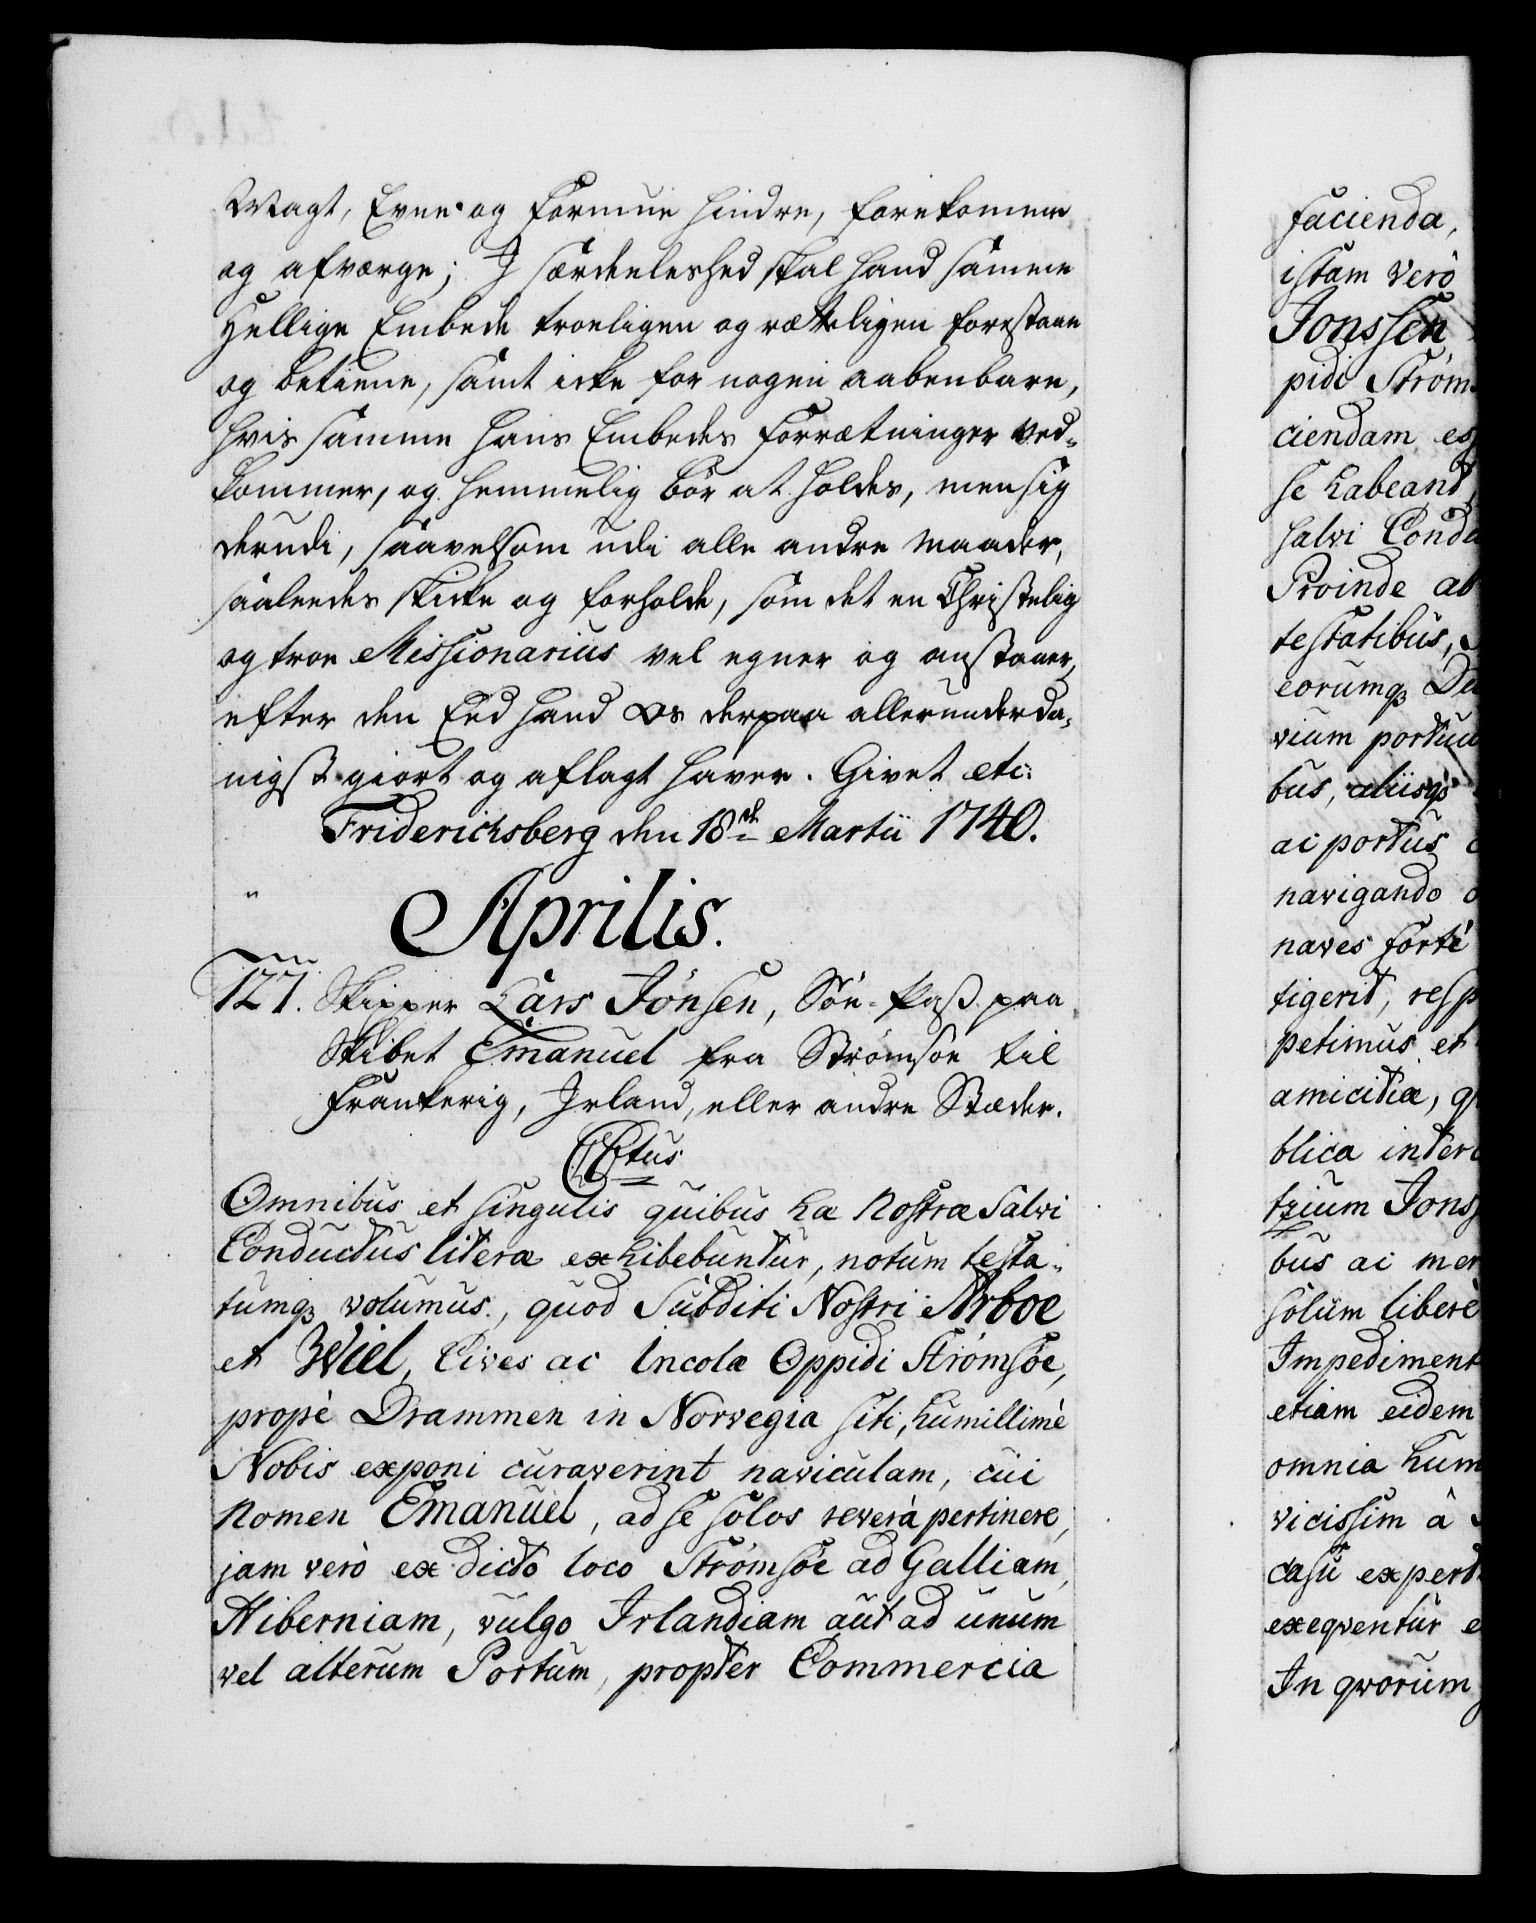 Magt, Evne og Formue hindre, forekomme
og afværge; J særdeleshed skal hand samme
Hellige Embede troeligen og rætteligen forestaae
og betiene, samt icke for nogen aabenbare,
hvis samme hans Embedes Forrætninger ved-
kommer, og hemmelig bör at holdes, men sig
derudi, saavelsom udi alle andre Maader,
saaledes skicke og forholde, som det en Christelig
og troe Missionarius vel egner og anstaaer,
efter den Eed hand Os derpaa allerunderda-
nigst giort og aflagt haver. Givet etc:
Friderichsberg den 18de Martii 1740.
Aprilis.
127. Skipper Lars Jonsen, Söe-Pass paa
Skibet Emanuel fra Strömsöe til
Frankerig, Irland, eller andre Stæder.
C6tus
Omnibus et singulis quibus hæ Nostræ Salvi
Conductus literæ exhibebuntur, notum testa-
tumq3 volumus, quod Subditi Nostri Arboe
et Wiel, Cives ac Incolæ Oppidi Strömsöe,
propè Drammen in Norvegia siti, humillimè
Nobis exponi curaverint naviculam, cui
Nomen Emanuel, ad se solos reverà pertinere,
jam verò ex dicto loco Strömsöe ad Galliam,
Hiberniam, vulgo Irlandiam aut ad unum
vel alterum Portum, propter Commercia
facienda,
istam verò
Jonssen
pidi Ströms
ciendam es
se habeant,
salvi Condu
Proinde ab
testatibus,
eorumq3 Du
vium portuu
bus, aliisq3
ac portus
navigando
naves fortè
tigerit, resp
petimus et
amicitia, q
blica inter
trium Jons
bus ac mer
solum liberè
Impediment
etiam eidem
omnia hum
vicissim à
casu expert
exeqventur e
In qvorum